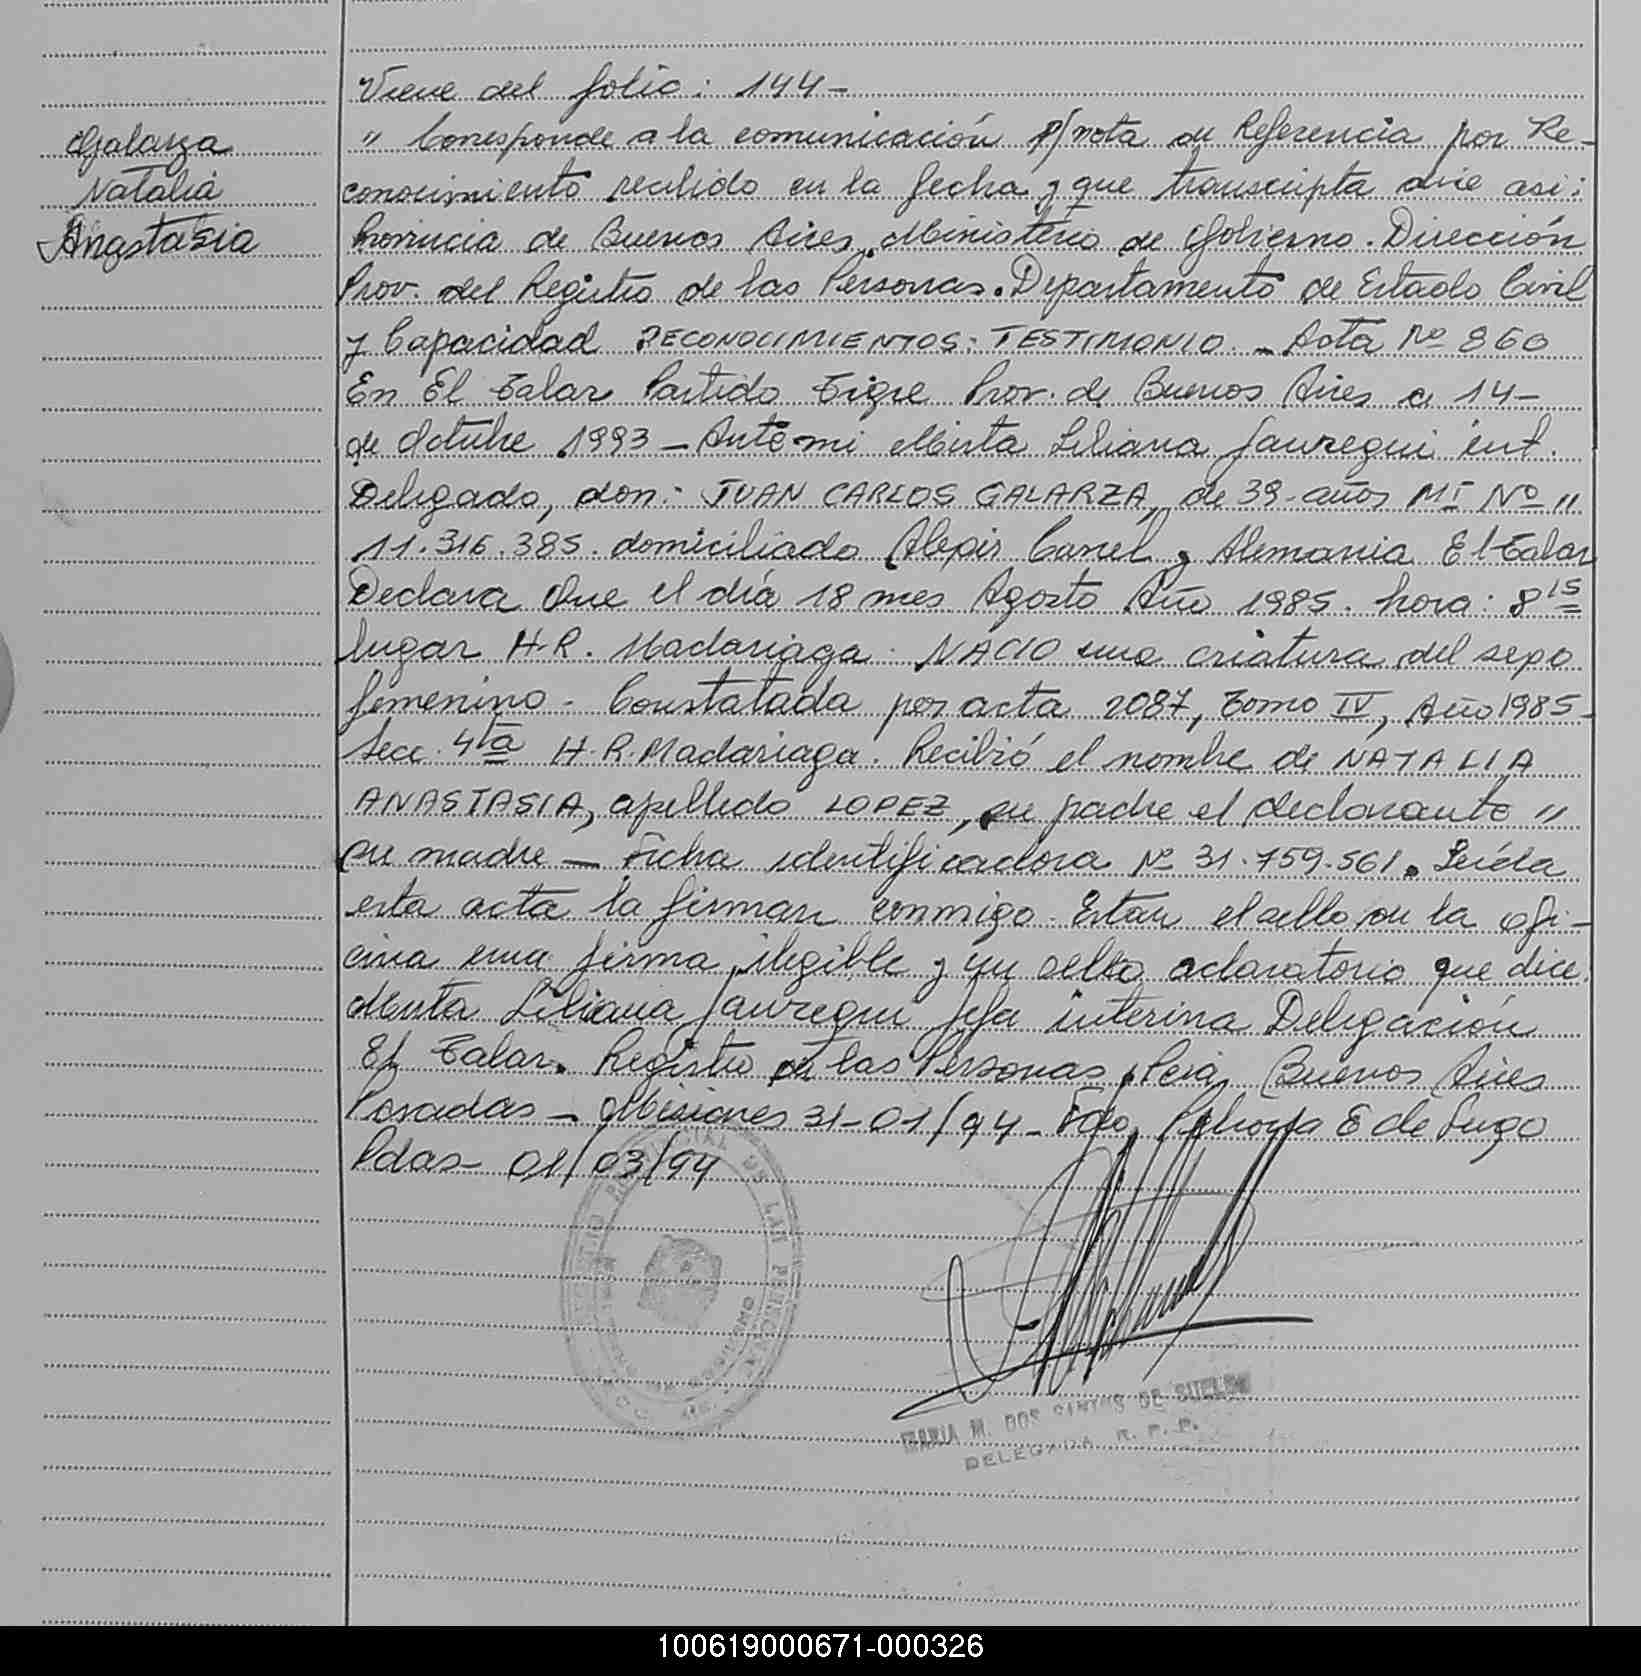 Viene del folio: 144-
Galarza
Natalia
Anastasia
" Corresponde a la comunicación p/nota de Referencia por Re-
conocimiento recibido en la fecha y que transcripta dice asi:
Provincia de Buenos Aires, Ministerio de Gobierno. Dirección
Prov. del Registro de las Personas. Departamento de Estado Civil
y Capacidad RECONOCIMIENTOS: TESTIMONIO. - Acta Nº 860
En El Talar Partido Tigre Prov. de Buenos Aires a 14-
de Octubre 1993 - Ante mi Mirta Liliana Jauregui int.
Delegado, don: JUAN CARLOS GALARZA, de 39 años MI Nº "
11.316.385. domiciliado Alexis Carrel y Alemania El Talar
Declara Que el día 18 mes Agosto Año 1985. hora: 8 15
lugar H.R. Madariaga. NACIO una criatura del sexo
femenino - Constatada por acta 2087, Tomo IV, Año 1985-
Secc. 4ta H.R. Madariaga. Recibió el nombre de NATALIA
ANASTASIA, apellido LOPEZ, su padre el declarante "
su madre - Ficha identificadora Nº 31.759.561. Leída
esta acta la firman conmigo. Estan el sello de la ofi-
cina una firma ilegible y un sello aclaratorio que dice.
Mirta Liliana Jauregui Jefa interina Delegación
El Talar. Registro de las Personas, Pcia, Buenos Aires
Posadas - Misiones 31-01/94 - Fdo, E de Lugo
Pdas- 01/03/94
REGISTRO PROVINCIAL DE LAS PERSONAS
MARIA M. DOS SANTOS DE
DELEGADA R. P. P.
100619000671-000326